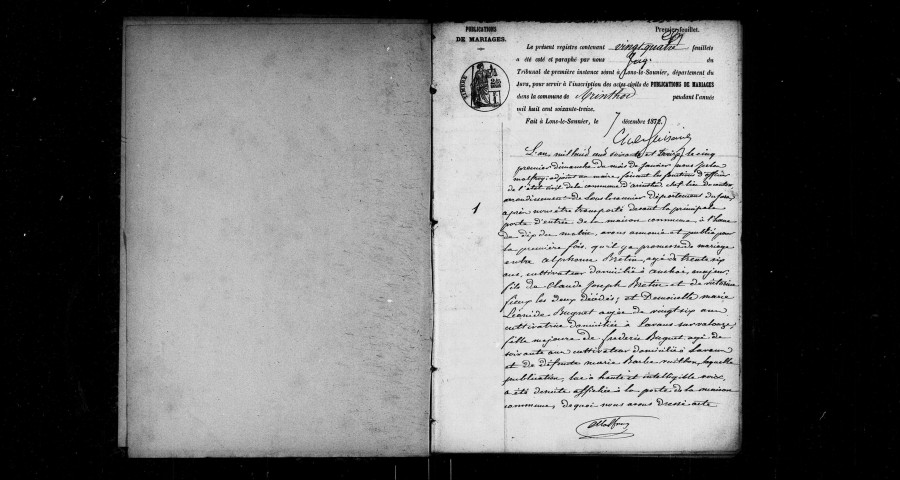 PUBLICATIONS
DE MARIAGES.
Premier feuillet.
Le présent registre contenant vingt quatre feuillets
a été coté et paraphé par nous Juge du
Tribunal de première instance séant à Lons-le-Saunier, département du
Jura, pour servir à l'inscription des actes civils de PUBLICATIONS DE MARIAGES
dans la commune de Arinthod pendant l'année
mil huit cent soixante-treize.
Fait à Lons-le-Saunier, le 7 décembre 1872.
TIMBRE
1
L'an mil huit cent soixante et treize, le cinq
premier dimanche du mois de janvier nous
adjoint au maire faisant les fonctions d'officier
de l'état civil de la commune d'arinthod chef lieu de canton
arrondissement de Lons-le-saunier département du Jura,
après nous être transporté devant la principale
porte d'entrée de la maison commune, à l'heure
de dix du matin, avons annoncé et publié pour
la première fois, qu'il y a promesse de mariage
entre alphonse Bretin, agé de trente six
ans, cultivateur domicilié à majeur,
fils de Claude Joseph Bretin et de victorine
les deux décédés; et Demoiselle marie
Léonide Buguet agée de vingt six ans
cultivatrice domiciliée à Lavans sur valouse,
fille majeure de frederic Buguet agé de
soixante ans cultivateur domicilié à Lavans
et de défunte marie Barbe laquelle
publication, lue à haute et intelligible voix,
a été de suite affichée à la porte de la maison
commune, de quoi nous avons Dressé acte